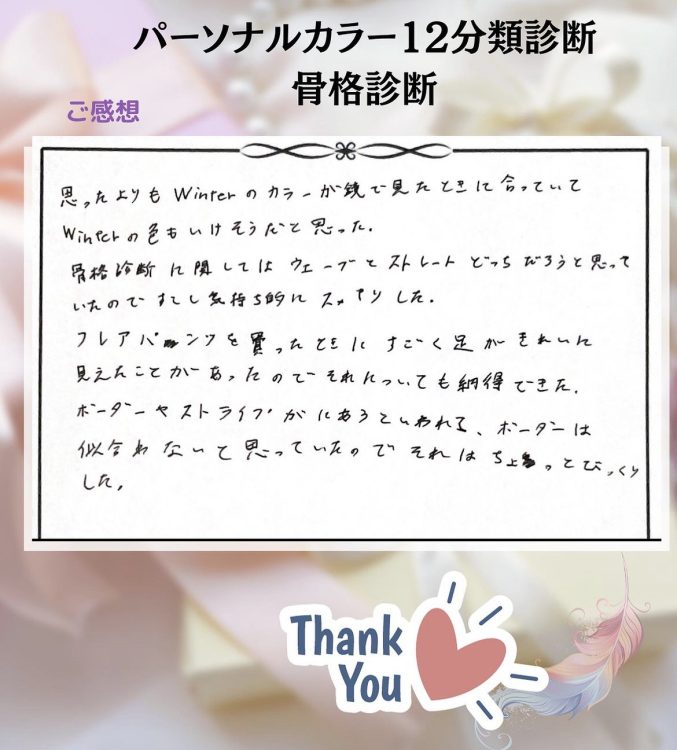 パーソナルカラー12分類診断
骨格診断
ご感想
思ったよりも Winterのカラーが鏡で見たときに合っていて
Winterの色もいけそうだと思った。
骨格診断に関しては ウェーブとストレート どっちだろうと思って
いたので すこし気持ち的に スッキリした。
フレアパンツを買ったときに すごく足がきれいに
見えたことがあったので それについても納得できた。
ボーダーやストライプがにあうといわれて、ボーダーは
似合わないと思っていたので それはちょっとびっくり
した。
Thank
You